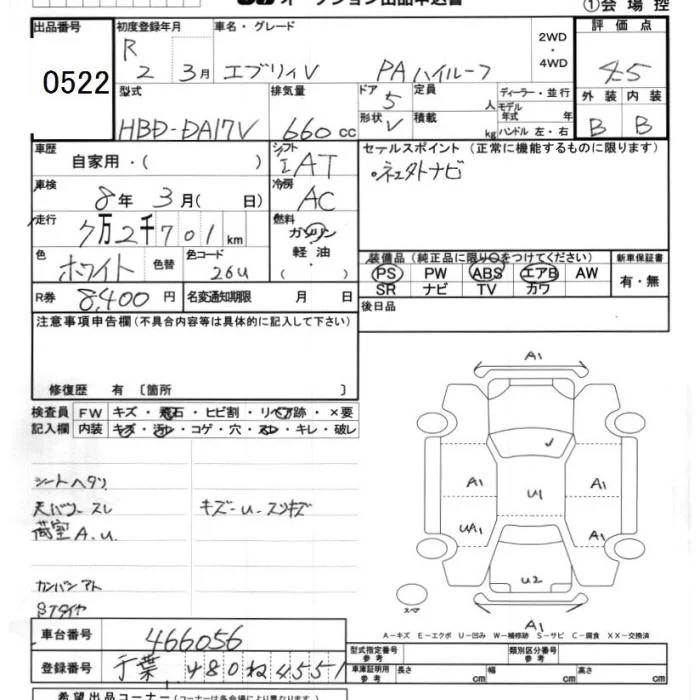 オークション出品申込書
①会場控
出品番号 0522
初度登録年月 R 2 3月
車名・グレード エブリィV PAハイルーフ
2WD・4WD
評価点 4.5
型式 HBD-DA17V
排気量 660 cc
ドア 5
形状 V
定員 人
積載 kg
ディーラー・並行
モデル年式 年
ハンドル 左・右
外装 B
内装 B
車歴 自家用・( )
シフト IAT
車検 8年 3月( 日)
冷房 AC
走行 7万2千701km
燃料 ガソリン 軽油・( )
色 ホワイト 色替
色コード 26U
R券 8,400 円
名変通知期限 月 日
セールスポイント (正常に機能するものに限ります)
装備品(純正品に限り○をつけてください)
PS PW ABS エアB AW
SR ナビ TV カワ
新車保証書 有・無
後日品
注意事項申告欄(不具合内容等は具体的に記入して下さい)
修復歴 有 〔箇所 〕
検査員記入欄
FW キズ・飛石・ヒビ割・リペア跡・×要
内装 キズ・汚レ・コゲ・穴・スレ・キレ・破レ
シートヘタリ
天バリ スレ
荷室 A.U.
キズ-U-スリキズ
カンバンアト
Sタイヤ
A1
A1
A1
U1
UA1
A1
U2
A1
スペア
A-キズ E-エクボ U-凹み W-補修跡 S-サビ C-腐食 XX-交換済
車台番号 466056
登録番号 千葉 480 ね 4551
型式指定番号 参考
類別区分番号 参考
車庫証明用 参考 長さ cm 幅 cm 高さ cm
希望出品コーナー(コーナーは各会場により異なります)